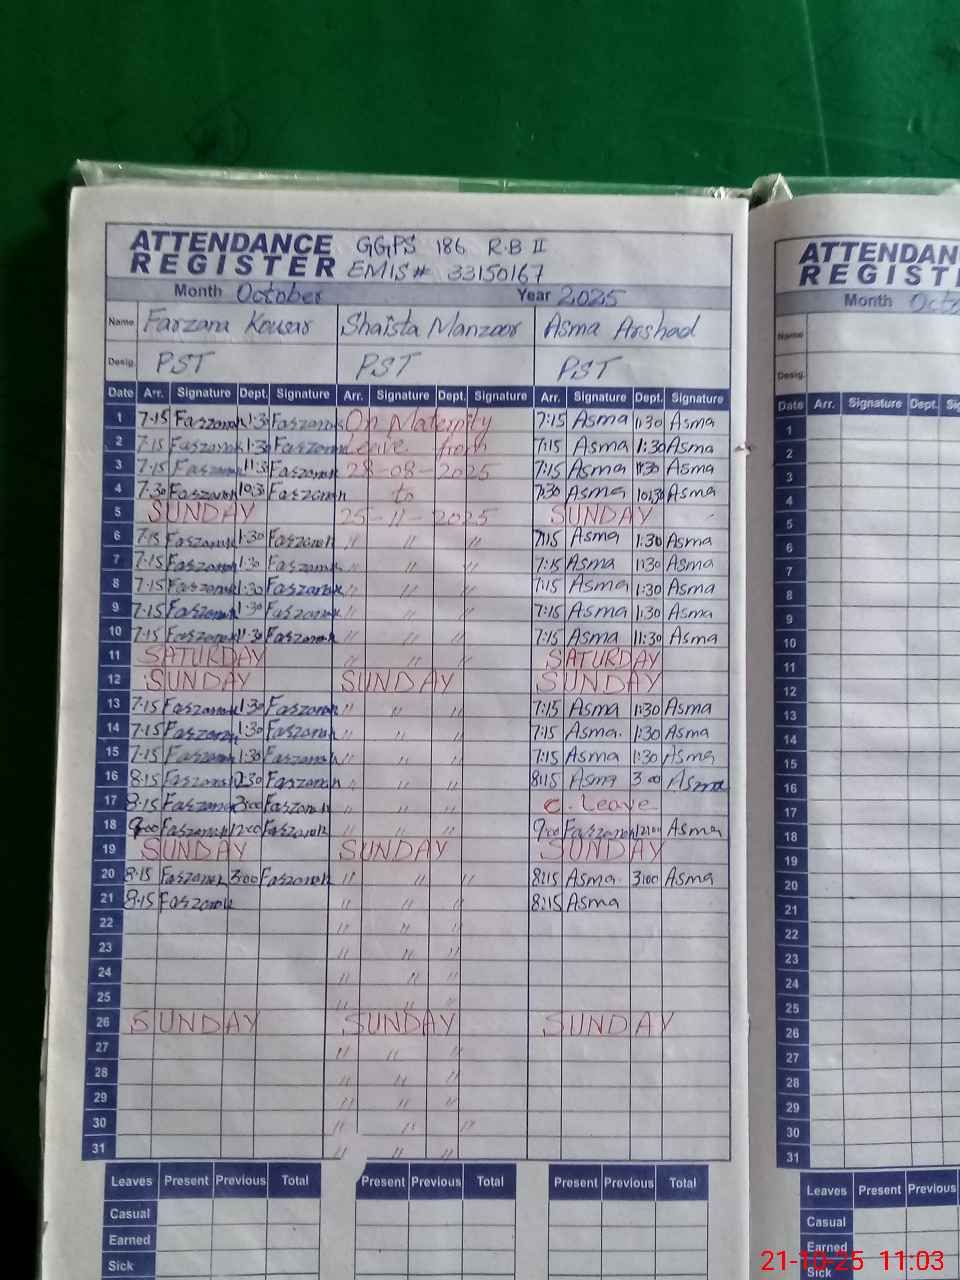 ATTENDANCE REGISTER GGPS 186 R.B II
EMIS# 33150167
Month October Year 2025
Name Farzana Kousar Shaista Manzoor Asma Arshad
Desig. PST PST PST
Date Arr. Signature Dept. Signature Arr. Signature Dept. Signature Arr. Signature Dept. Signature
1 7:15 Farzanah 1:30 Farzanah On Maternity 7:15 Asma 1:30 Asma
2 7:15 Farzanah 1:30 Farzanah Leave from 7:15 Asma 1:30 Asma
3 7:15 Farzanah 11:30 Farzanah 28-08-2025 7:15 Asma 11:30 Asma
4 7:30 Farzanah 10:30 Farzanah to 7:30 Asma 10:30 Asma
5 SUNDAY 25-11-2025 SUNDAY
6 7:15 Farzanah 1:30 Farzanah " " " 7:15 Asma 1:30 Asma
7 7:15 Farzanah 1:30 Farzanah " " " 7:15 Asma 1:30 Asma
8 7:15 Farzanah 1:30 Farzanah " " " 7:15 Asma 1:30 Asma
9 7:15 Farzanah 1:30 Farzanah " " " 7:15 Asma 1:30 Asma
10 7:15 Farzanah 11:30 Farzanah " " " 7:15 Asma 11:30 Asma
11 SATURDAY " " " SATURDAY
12 SUNDAY SUNDAY SUNDAY
13 7:15 Farzanah 1:30 Farzanah " " " 7:15 Asma 1:30 Asma
14 7:15 Farzanah 1:30 Farzanah " " " 7:15 Asma. 1:30 Asma
15 7:15 Farzanah 1:30 Farzanah " " " 7:15 Asma 1:30 Asma
16 8:15 Farzanah Farzanah " " " 8:15 Asma 3:00 Asma
17 8:15 Farzanah 3:00 Farzanah " " " C. Leave
18 9:00 Farzanah 12:00 Farzanah " " " 9:00 Farzanah 12:00 Asma
19 SUNDAY SUNDAY SUNDAY
20 8:15 Farzanah 3:00 Farzanah " " " 8:15 Asma. 3:00 Asma
21 8:15 Farzanah " " " 8:15 Asma
22 " " "
23 " " "
24 " " "
25 " " "
26 SUNDAY SUNDAY SUNDAY
27 " " "
28 " " "
29 " " "
30 " " "
31 " " "
Leaves Present Previous Total Present Previous Total Present Previous Total
Casual
Earned
Sick
ATTENDAN
REGIST
Month Octo
Name
Desig.
Date Arr. Signature Dept. Sig
1
2
3
4
5
6
7
8
9
10
11
12
13
14
15
16
17
18
19
20
21
22
23
24
25
26
27
28
29
30
31
Leaves Present Previous
Casual
Earned
Sick
21-10-25 11:03